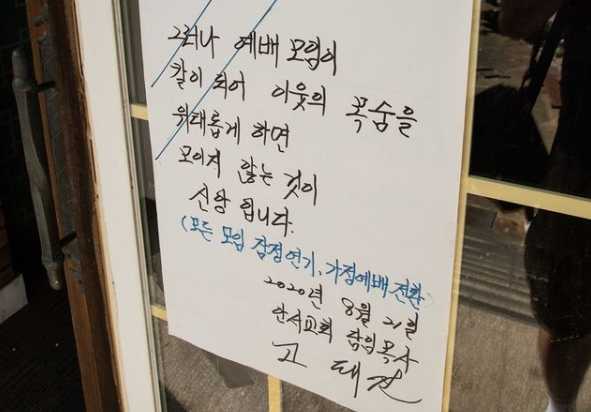 그러나 예배 모임이
칼이 되어 이웃의 목숨을
위태롭게 하면
모이지 않는 것이
신앙 입니다.
(모든 모임 잠정연기, 가정예배 전환)
2020년 8월 21일
안서교회 담임목사
고 태진